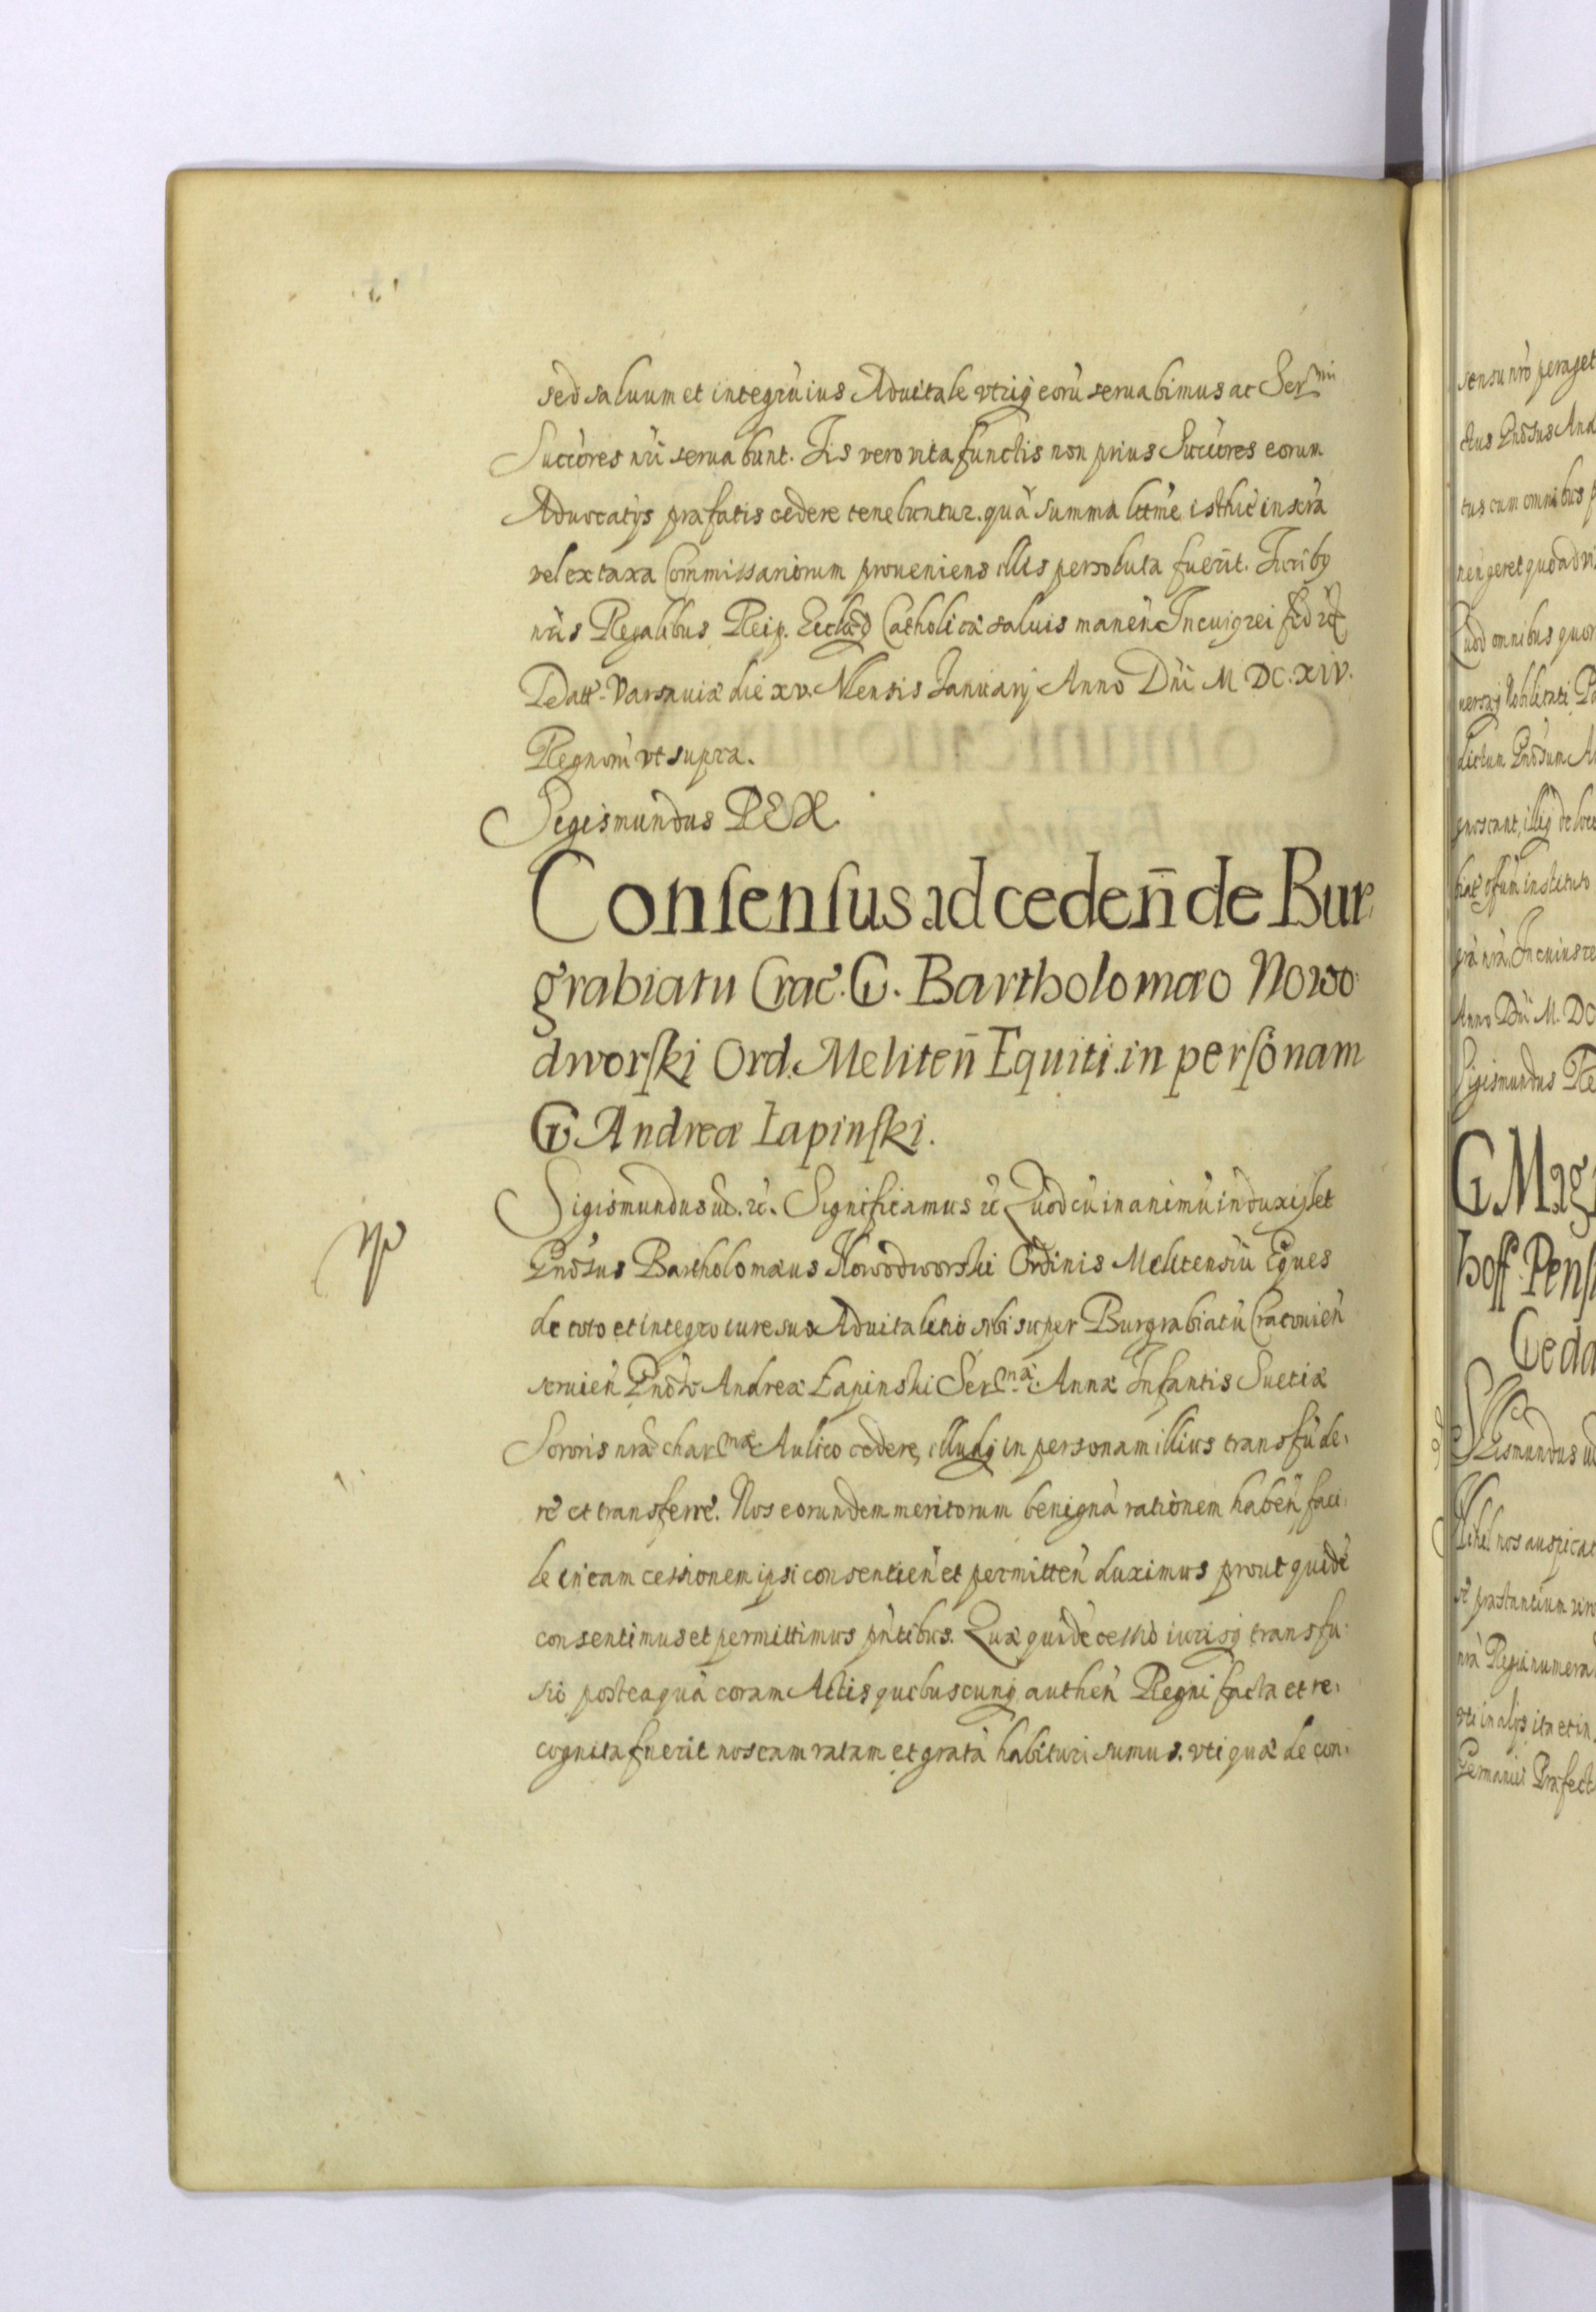 sed saluum et integrũ ius Aduitale vtriq̃ eorũ seruabimus ac Ser^mi
Succores nři seruabunt. Iis vero vita functis non prius Succores eorum
Aduocatÿs præfatis cedere tenebuntur. quã summa lťťme isthic inscra
vel ex taxa Commissariorum proueniens illis persoluta fuerit. Iurib9
nřis Regalibus Reip. Ecclæq̃ Catholicæ saluis maneñ In cuiq rei fid
Datt. Varsauiæ die xv. Mensis Januarij Anno Dñi M DC. XIV.
Regnorũ vt supra.
Sigismundus REX.
Consensus ad cedeñ de Bur,
grabiatu Crac̃. G. Bartholomæo Nowo:
dworski Ord. Meliteñ Equiti. in personam
G. Andreæ Łapinski.
Sigismundus ud. ĩc. Significamus ĩc Quod cũ in animũ induxisset
Gñosus Bartholomæus Nowodworski Ordinis Melitensiũ Eques
de toto et integro iure suo Aduitalitio sibi super Burgrabiatũ Cracouieñ
seruieñ Gñoso Andreæ Lapinski Ser^mæ Annæ Infantis Suetiæ
Sororis nřæ char^mæ Aulico cedere, illudq̃ in personam illius transfũde,
re et transferre. Nos eorundem meritorum benignã rationem habeñ faci,
le in eam cessionem ipsi consentieñ et permitteñ duximus prout quidẽ
consentimus et permittimus pñtibus. Quæ quidẽ cessio iurisq̃ transfu,
sio posteaquã coram Actis quibuscunq̃ autheñ Regni facta et re,
cognita fuerit nos eam ratam et gratã habituri sumus. vti quæ de con,
sensu nřo peraget
Gñosus And
tus cum omnibus p
Quod omnibus quor
uersæq̃ Nobilitati
dictum Gñosum A
gnoscant, illiq̃ de loco
instituto
grã nřã. In cuius re
Anno Dñi M. DC
Sigismundus Re
G. Mag
hoff. Pens
Geda
Sigismundus ud
nos auspicat
præstantium viro
nřã Regia numera
vti in alÿs ita et in
Germanici Præfect